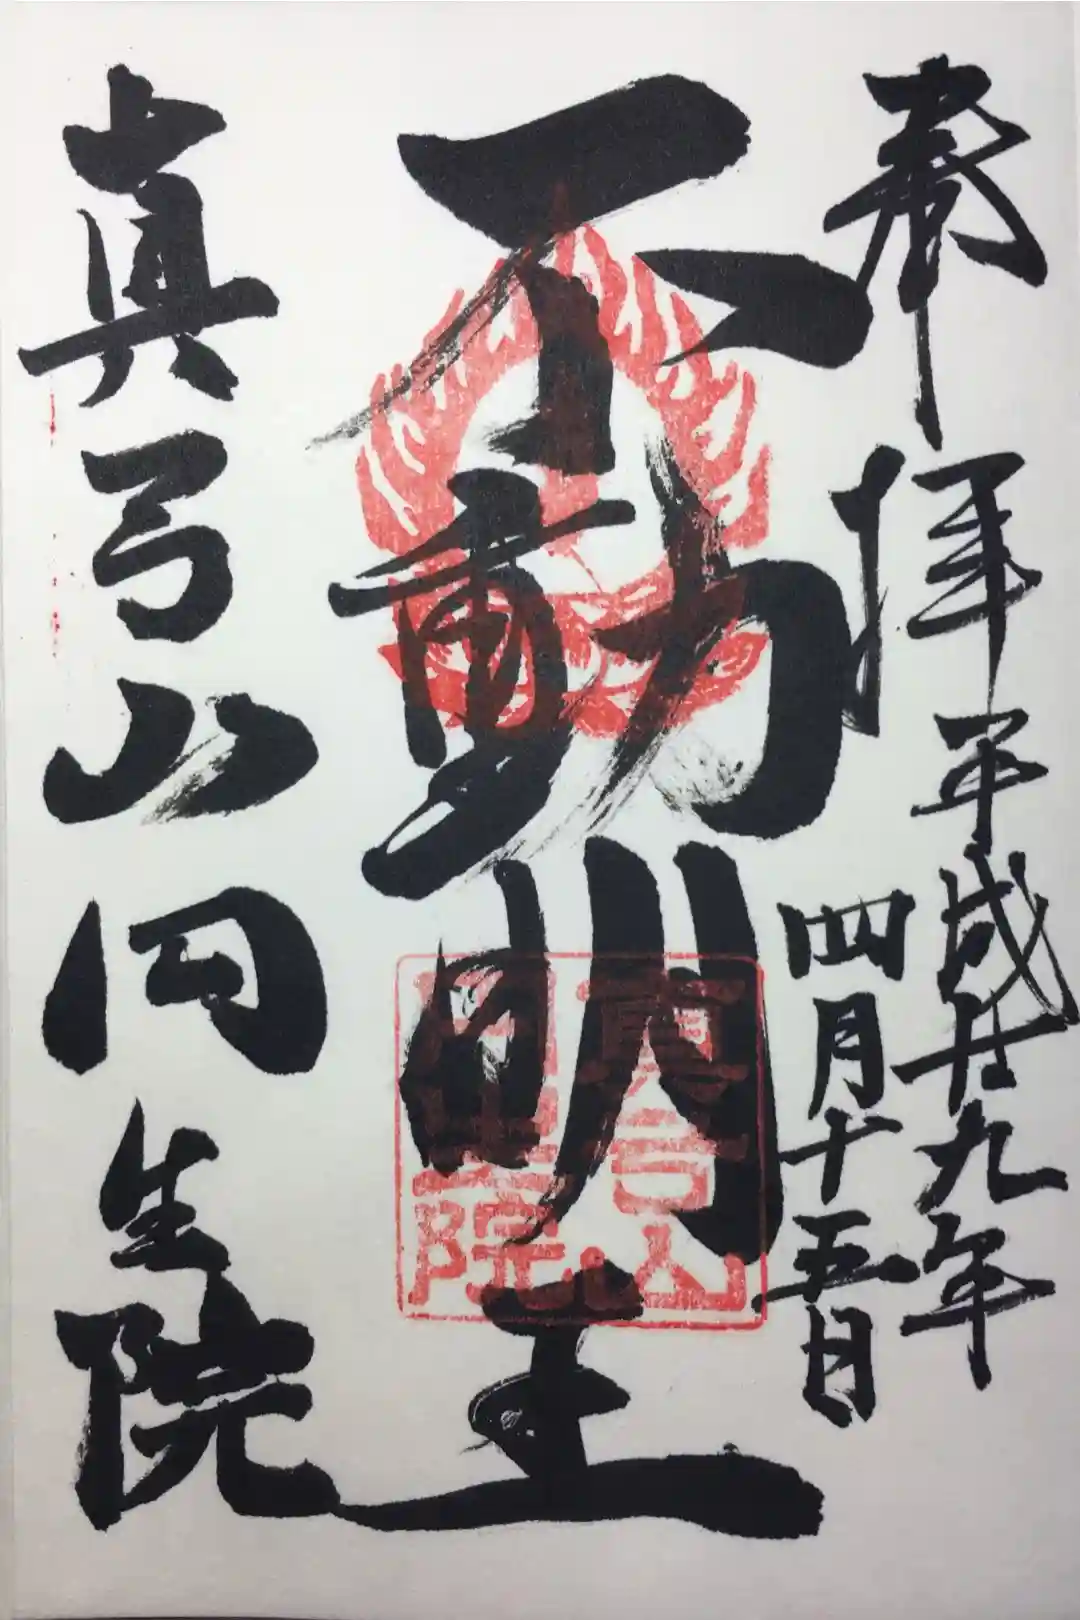 奉拝
平成廿九年
四月十五日
不動明王
真弓山
円生院
真弓山円生院